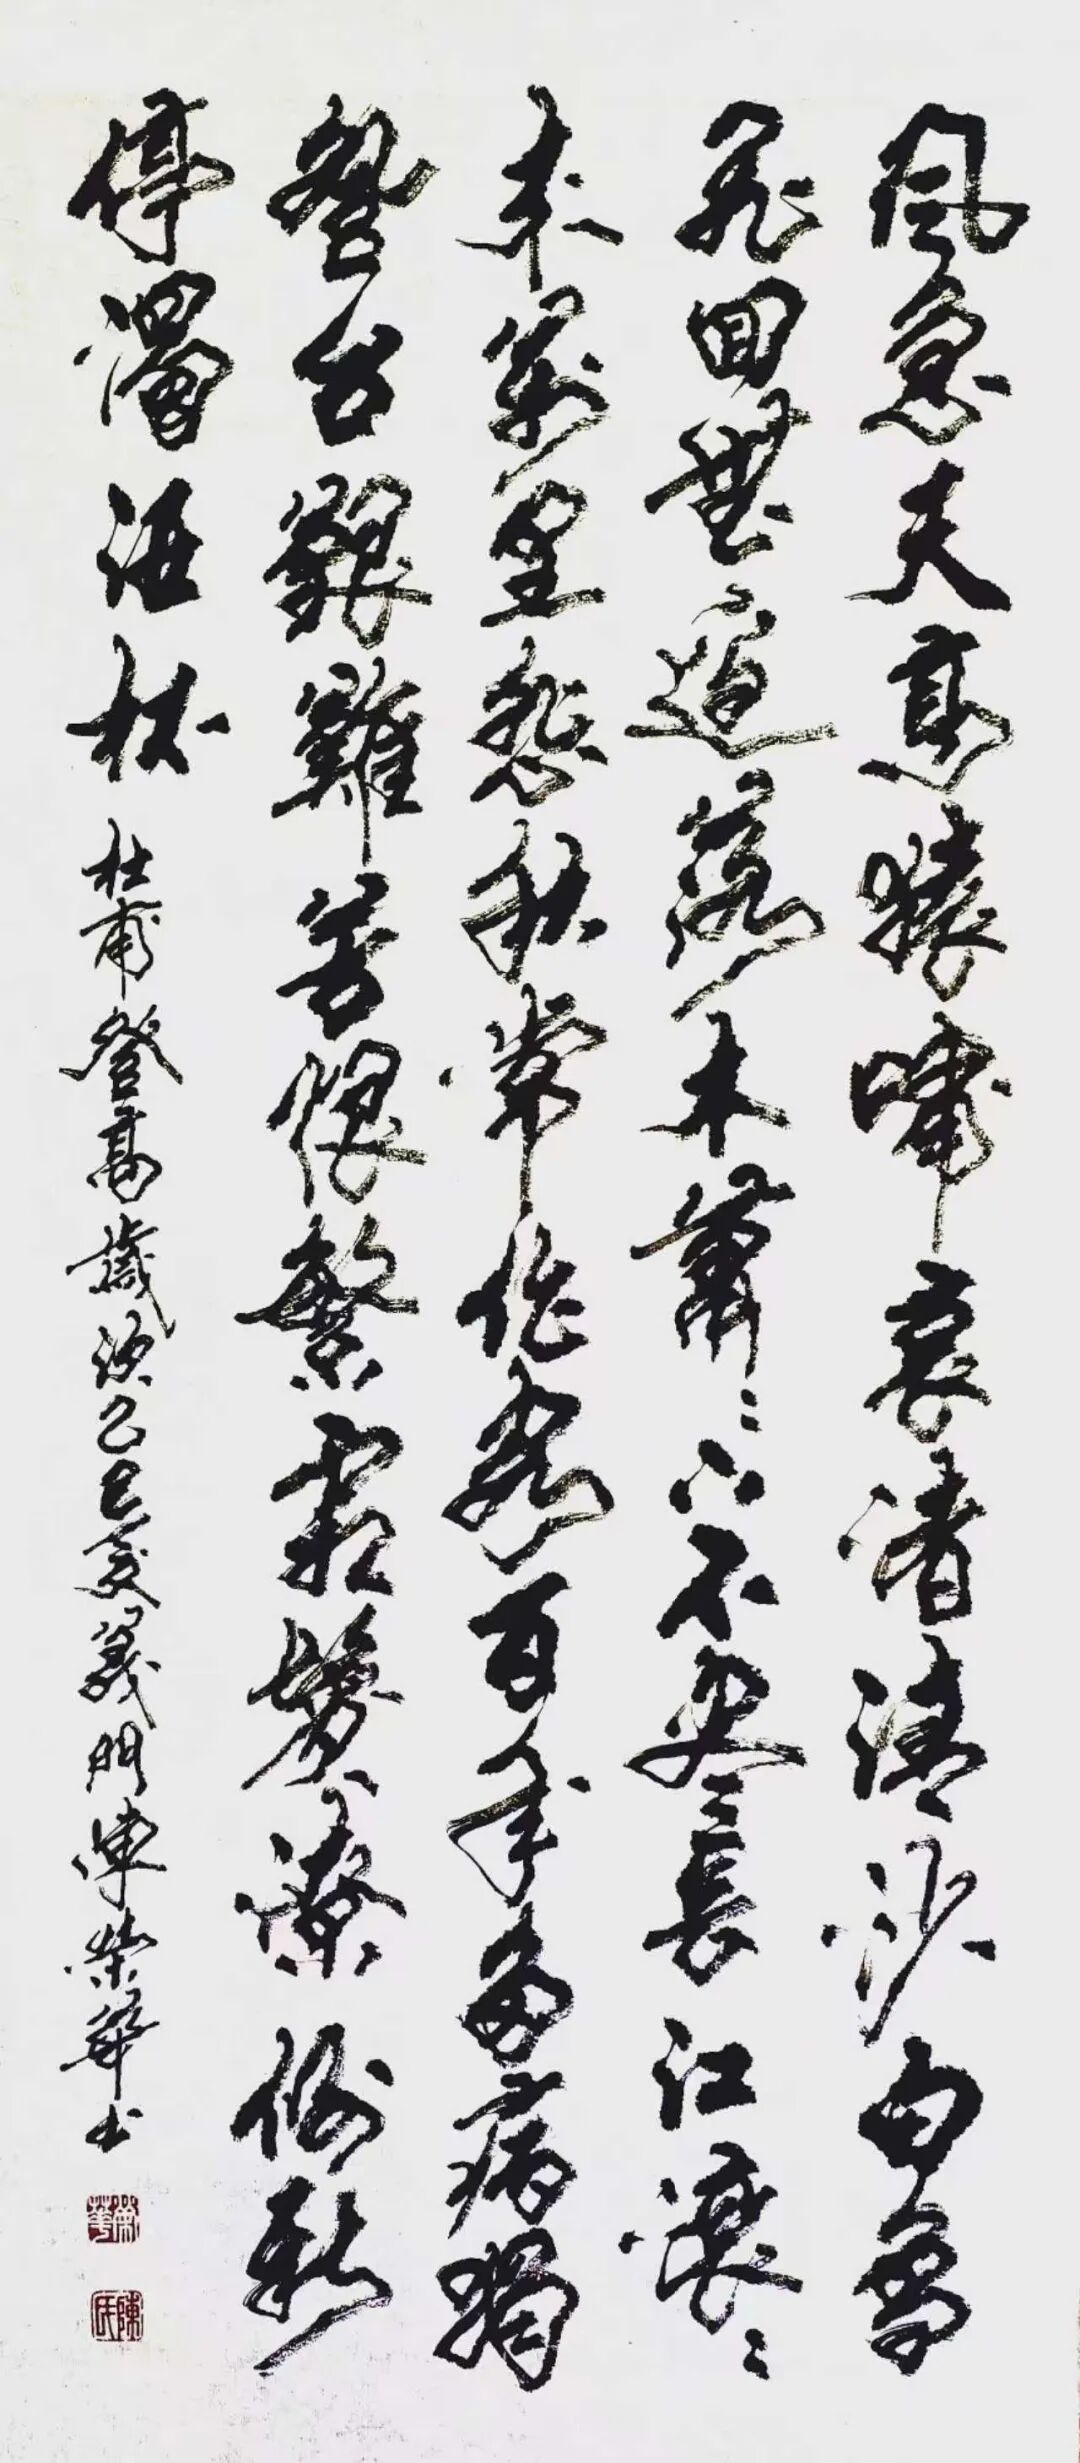 風急天高猿嘯哀渚清沙白鳥
飛回無邊落木蕭〻下不盡長江滾〻
来萬里悲秋常作客百年多病獨
登台艱難苦恨繁霜鬢潦倒新
停濁酒杯 杜甫登高歲次乙巳夏義門陳榮華书
榮華
陳氏